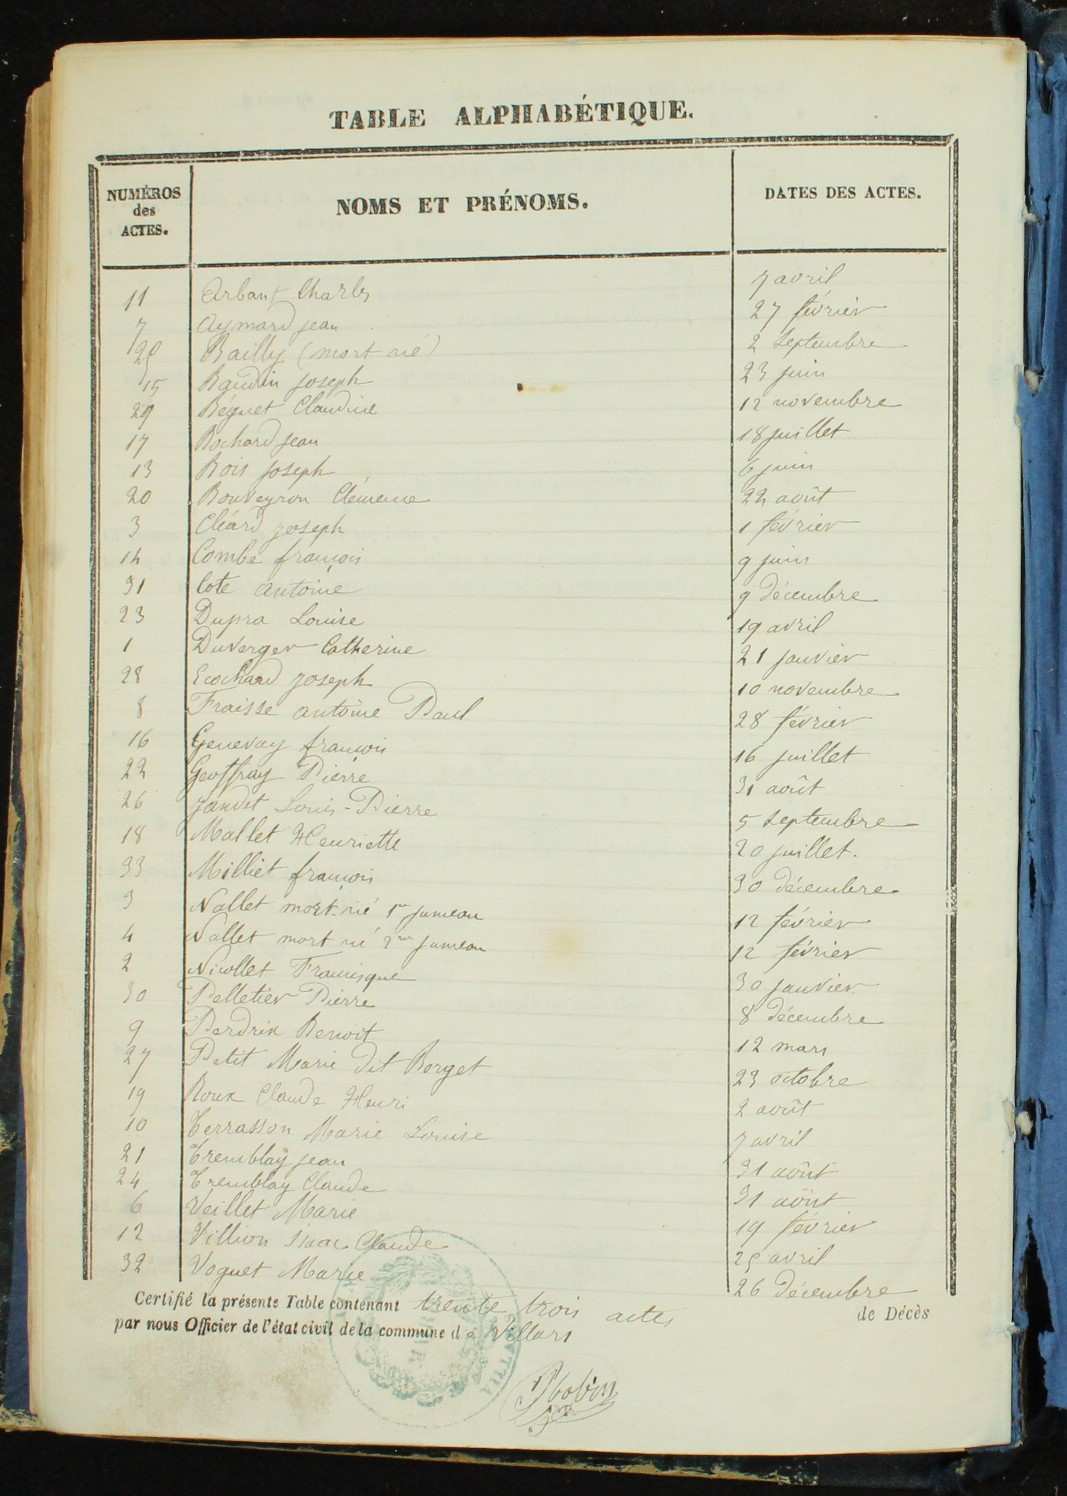 TABLE ALPHABÉTIQUE.
NUMÉROS des ACTES. NOMS ET PRÉNOMS. DATES DES ACTES.
11 Arban Charles 7 avril
7 Aymard jean 27 février
25 Bailly (mort né) 2 Septembre
15 Baudin joseph 23 juin
29 Béguet Claudine 12 novembre
17 Bochard jean 18 juillet
13 Bois joseph 6 juin
20 Bouveyron Clémence 22 août
3 Cléard joseph 1 février
14 Combe françois 9 juin
31 Cote antoine 9 décembre
23 Dupra Louise 19 avril
1 Duverger Catherine 21 janvier
28 Ecochard joseph 10 novembre
8 Fraisse antoine Paul 28 février
16 Genevay françois 16 juillet
22 Geoffray Pierre 31 août
26 jandet Louis-Pierre 5 septembre
18 Mallet Henriette 20 juillet.
33 Milliet françois 30 décembre
3 Nallet mort né 1er jumeau 12 février
4 Nallet mort né 2me jumeau 12 février
2 Nicollet Francisque 30 janvier
30 Pelletier Pierre 8 décembre
9 Perdrix Benoit 12 mars
27 Petit Marie dit Borget 23 octobre
19 Roux Claude Henri 2 août
10 Terrasson Marie Louise 7 avril
21 Tremblay jean 31 août
24 Tremblay Claude 31 août
6 Veillet Marie 19 février
12 Villion Isaac Claude 25 avril
32 Voguet Marie 26 décembre
Certifié la présente Table contenant trente trois actes de Décès
par nous Officier de l'état civil de la commune de Villars